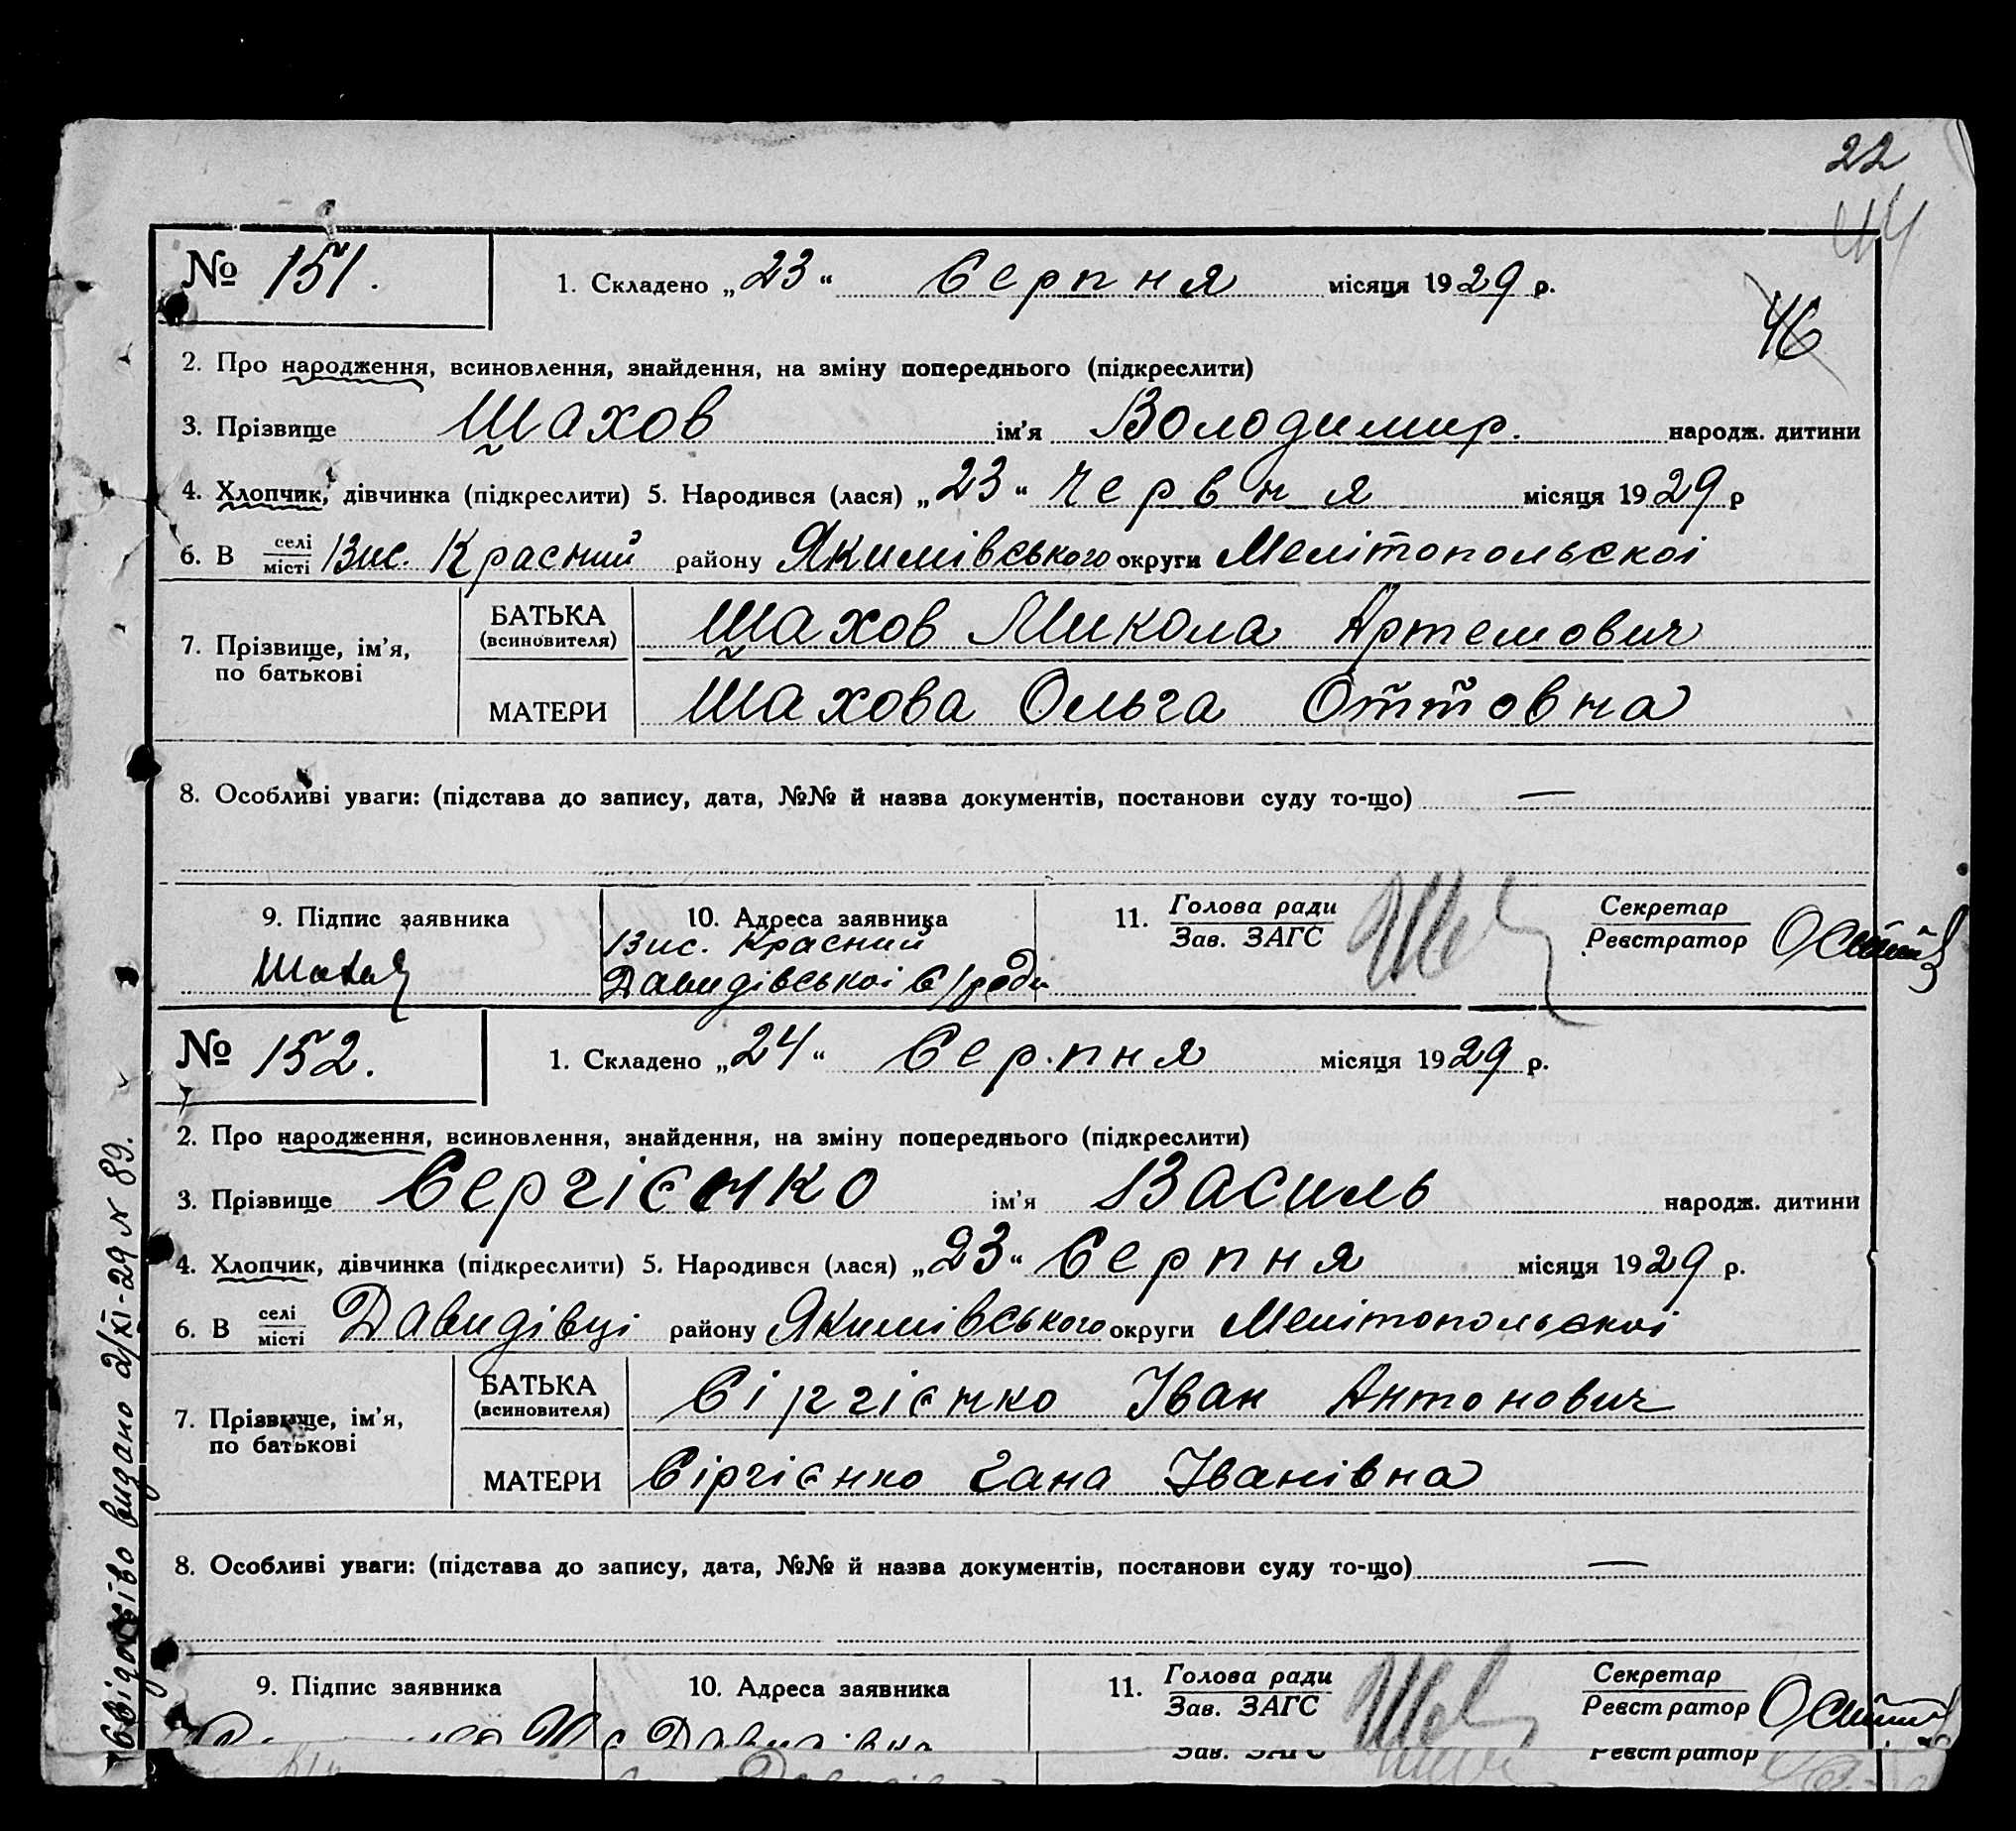 22
44
46
№ 151.
1. Складено „23“ Серпня місяця 1929 р.
2. Про народження, всиновлення, знайдення, на зміну попереднього (підкреслити)
3. Прізвище Шахов ім'я Володимир. народж. дитини
4. Хлопчик, дівчинка (підкреслити) 5. Народився (лася) „23“ Червня місяця 1929 р
6. В селі/місті Вис. Красний району Якимівського округи Мелітопольскоі
7. Прізвище, ім'я, по батькові
БАТЬКА (всиновителя) Шахов Микола Артемович
МАТЕРИ Шахова Ольга Оттовна
8. Особливі уваги: (підстава до запису, дата, №№ й назва документів, постанови суду то-що) —
9. Підпис заявника
10. Адреса заявника
Вис. Красний
Давидівськоі С/ради
11. Голова ради
Зав. ЗАГС
Секретар
Реєстратор
№ 152.
1. Складено „24“ Серпня місяця 1929 р.
2. Про народження, всиновлення, знайдення, на зміну попереднього (підкреслити)
3. Прізвище Сергієнко ім'я Василь народж. дитини
4. Хлопчик, дівчинка (підкреслити) 5. Народився (лася) „23“ Серпня місяця 1929 р.
6. В селі/місті Давидівці району Якимівського округи Мелітопольскоі
7. Прізвище, ім'я, по батькові
БАТЬКА (всиновителя) Сіргієнко Іван Антонович
МАТЕРИ Сіргієнко Гана Іванівна
8. Особливі уваги: (підстава до запису, дата, №№ й назва документів, постанови суду то-що) —
9. Підпис заявника
10. Адреса заявника
с Давидівка
11. Голова ради
Зав. ЗАГС
Секретар
Реєстратор
Зав. ЗАГС
Реєстратор
видано 2/XI-29 N 89.